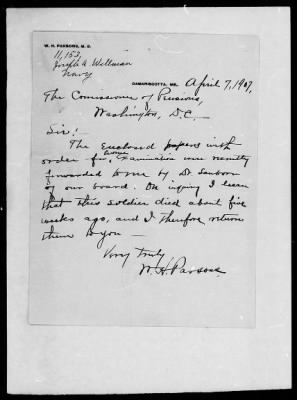 W. H. PARSONS, M. D.
11,153,
Joseph A. Wellman
Navy
DAMARISCOTTA, ME. April 7, 1907,
The Comissioner of Pensions,
Washington, D.C.
Sir:-
The Enclosed papers with
order for home Examination were recently
forwarded to me by Dr. Sanborn
of our board. On inquiry I learn
that this soldier died about five
weeks ago, and I therefore return
them to you —
Very truly
W. H. Parsons.